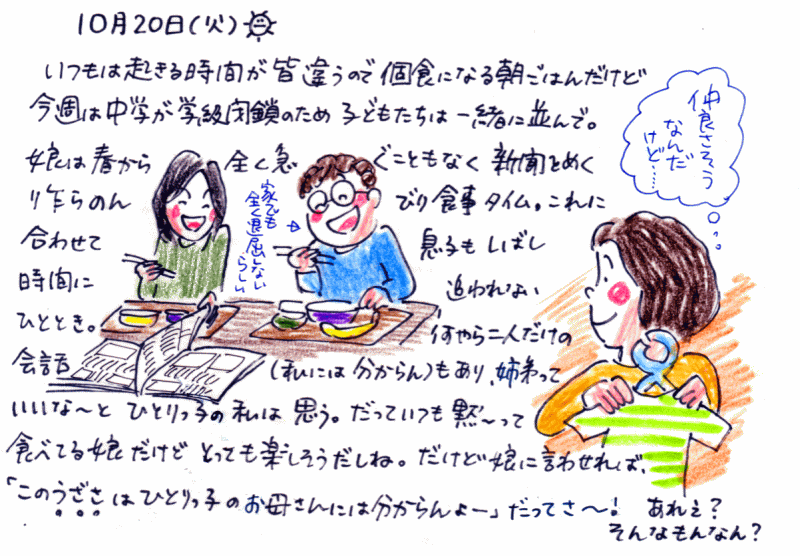 10月20日(火)
いつもは起きる時間が皆違うので個食になる朝ごはんだけど
今週は中学が学級閉鎖のため子どもたちは一緒に並んで。
娘は春から全く急ぐこともなく新聞をめく
り乍らのんびり食事タイム。これに
合わせて息子もしばし
時間に追われない
ひととき。
何やら二人だけの
会話(私には分からん)もあり、姉弟って
いいな〜とひとりっ子の私は思う。だっていつも黙〜って
食べてる娘だけどとっても楽しそうだしね。だけど娘に言わせれば、
「このうざさはひとりっ子のお母さんには分からんよー」だってさ〜!
あれぇ?
そんなもんなん?
家でも
全く退屈しない
らしい
仲良さそう
なんだ
けど…